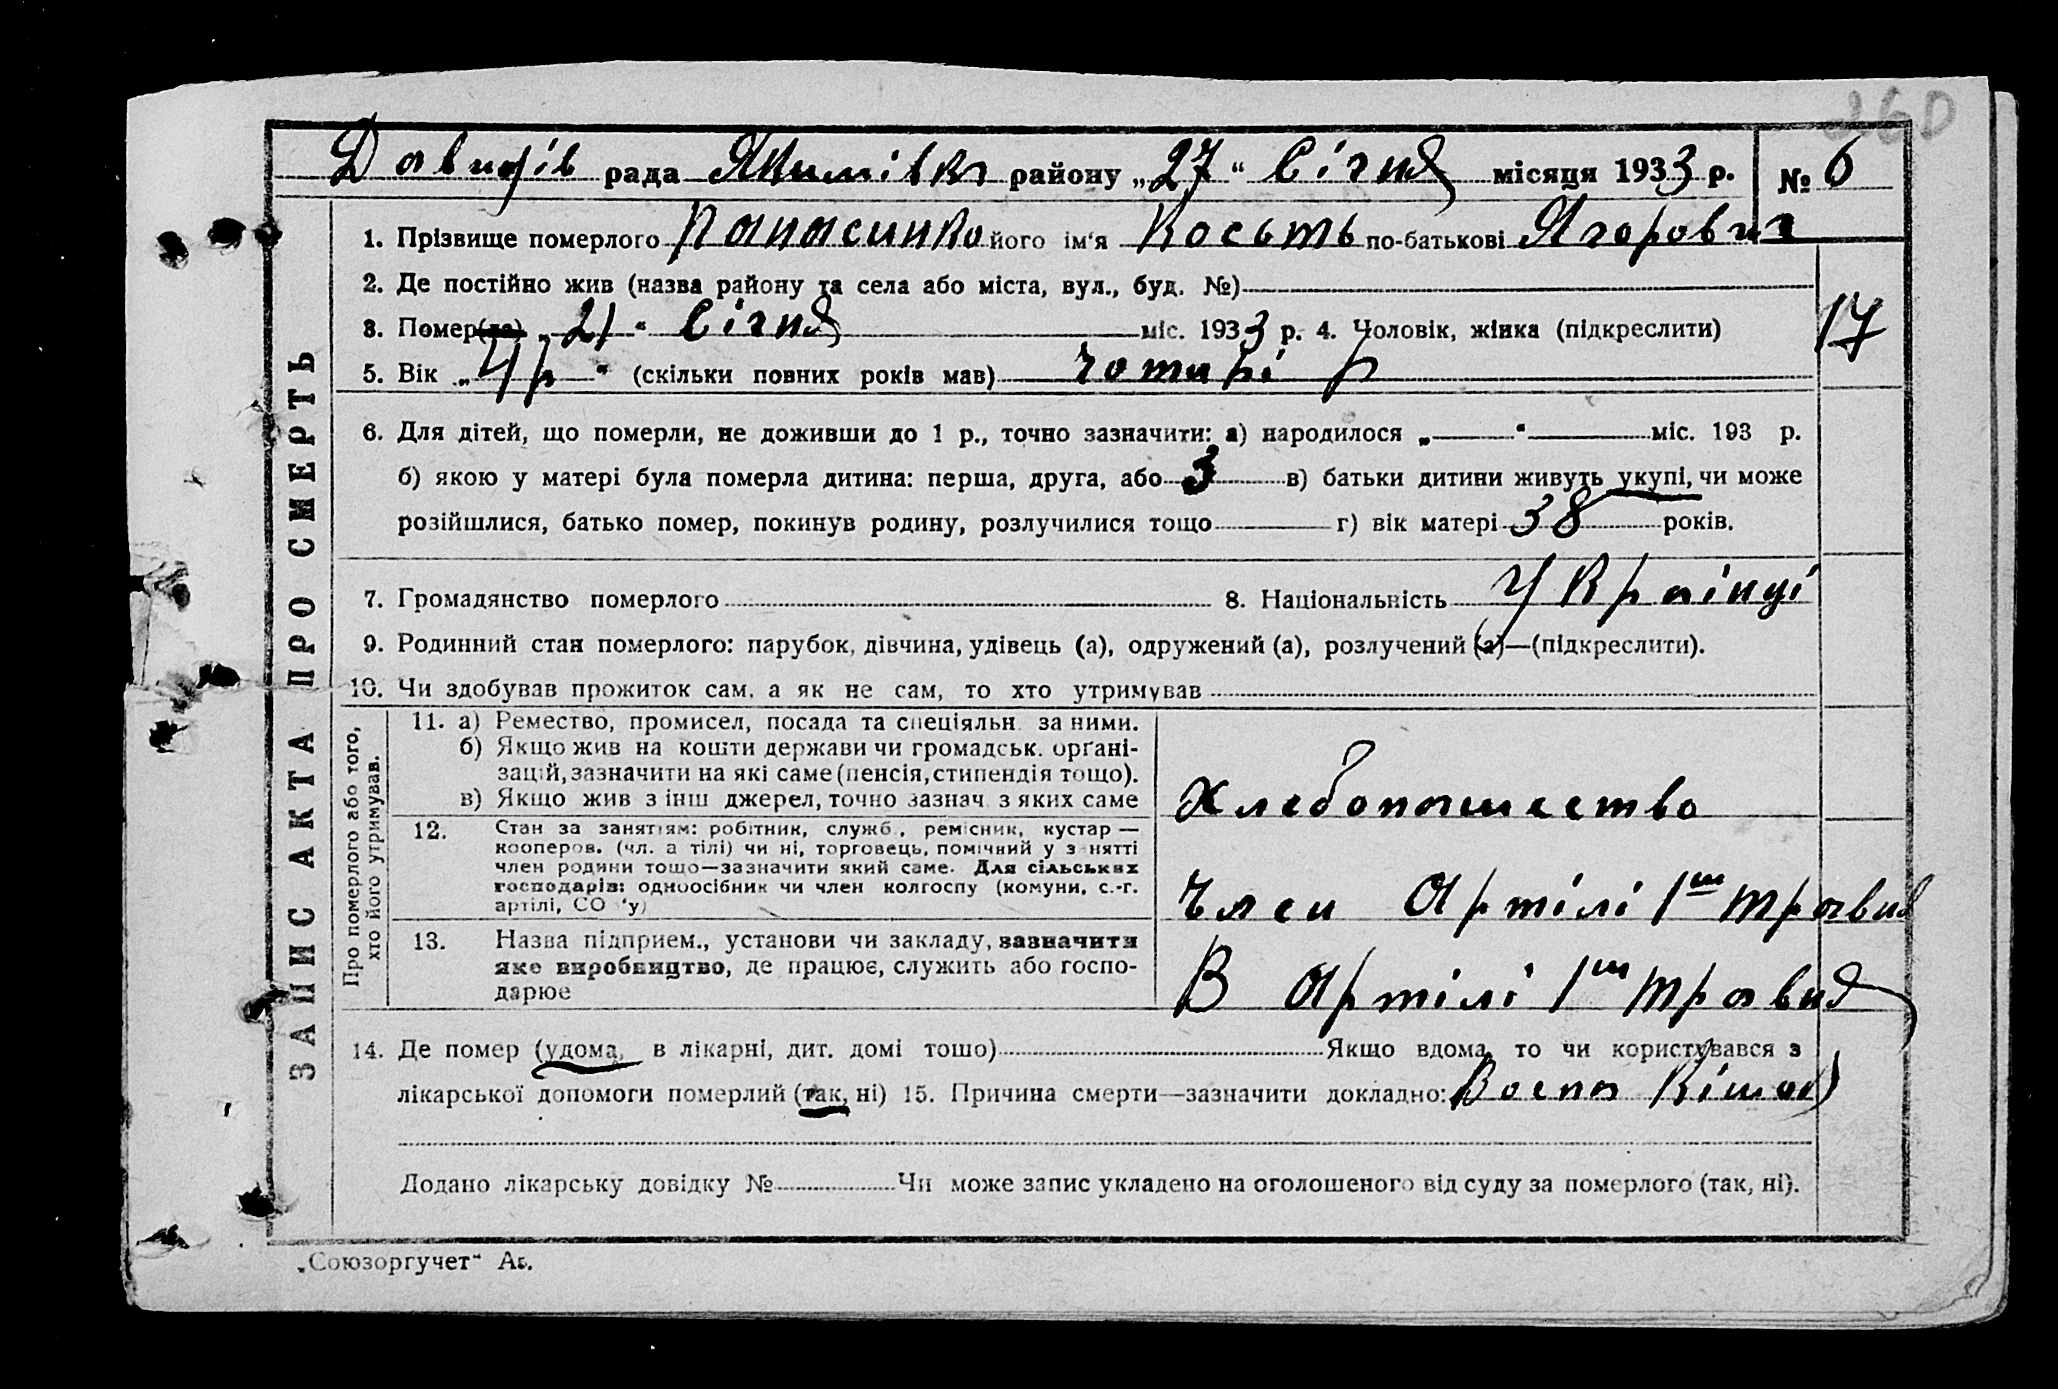 Давидів рада Якимівка району „27“ Січня місяця 1933 р. № 6
1. Прізвище померлого Панасинко його ім'я Косьть по-батькові Ягорович
2. Де постійно жив (назва району та села або міста, вул., буд. №)
3. Помер(ла) „21“ Січня міс. 1933 р. 4. Чоловік, жінка (підкреслити)
17
5. Вік „4 р“ (скільки повних років мав) чотирі р
6. Для дітей, що померли, не доживши до 1 р., точно зазначити: а) народилося „ “ міс. 193 р.
б) якою у матері була померла дитина: перша, друга, або 3 в) батьки дитини живуть укупі, чи може
розійшлися, батько помер, покинув родину, розлучилися тощо г) вік матері 38 років.
7. Громадянство померлого 8. Національність Украінці
9. Родинний стан померлого: парубок, дівчина, удівець (а), одружений (а), розлучений (а)—(підкреслити).
10. Чи здобував прожиток сам, а як не сам, то хто утримував
ЗАПИС АКТА ПРО СМЕРТЬ
Про померлого або того,
хто його утримував.
11. а) Ремество, промисел, посада та спеціяльн за ними.
б) Якщо жив на кошти держави чи громадськ. орґані-
зацій, зазначити на які саме (пенсія, стипендія тощо).
в) Якщо жив з інш джерел, точно зазнач з яких саме
Хлебопашество
12. Стан за заняттям: робітник, служб., ремісник, кустар —
кооперов. (чл. а тілі) чи ні, торговець, помічний у з нятті
член родини тощо—зазначити який саме. Для сільських
господарів: одноосібник чи член колгоспу (комуни, с.-г.
артілі, СО 'у)
Члси Артілі 1ш травня
13. Назва підприєм., установи чи закладу, зазначити
яке виробництво, де працює, служить або госпо-
дарює
В Артілі 1ш травня
14. Де помер (удома, в лікарні, дит. домі тошо) Якшо вдома, то чи користувався з
лікарської допомоги померлий (так, ні) 15. Причина смерти—зазначити докладно: Воспа
Додано лікарську довідку № Чи може запис укладено на оголошеного від суду за померлого (так, ні).
„Союзоргучет“